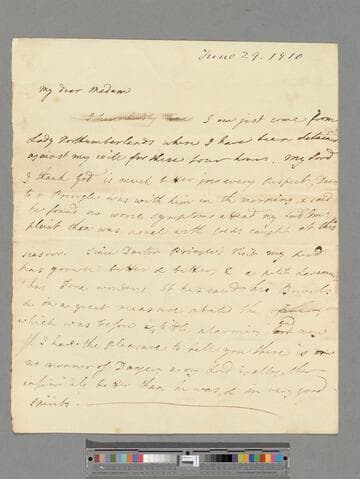 June 29. 1810
My dear Madam
I am just come from
Lady Northumberlands where I have been detain'd
against my will for these four hours. My Lord
I thank God is much better in every respect, Doc-
tor Pringle was with him in the morning, & said
he found no worse symptoms attend my Lord's com-
plaint than was usual with colds caught at this
season. Since Doctor Pringle's Visit my Lord
has grown better & better, & a petit Lavement
has done wonders. It has eas'd his Bowels
& in a great measure abated the
which was before a little alarming, and now
I have the pleasure to tell you there is
no manner of Danger, as my Lord is altogether
infinitely better than he was & in very good
Spirits.